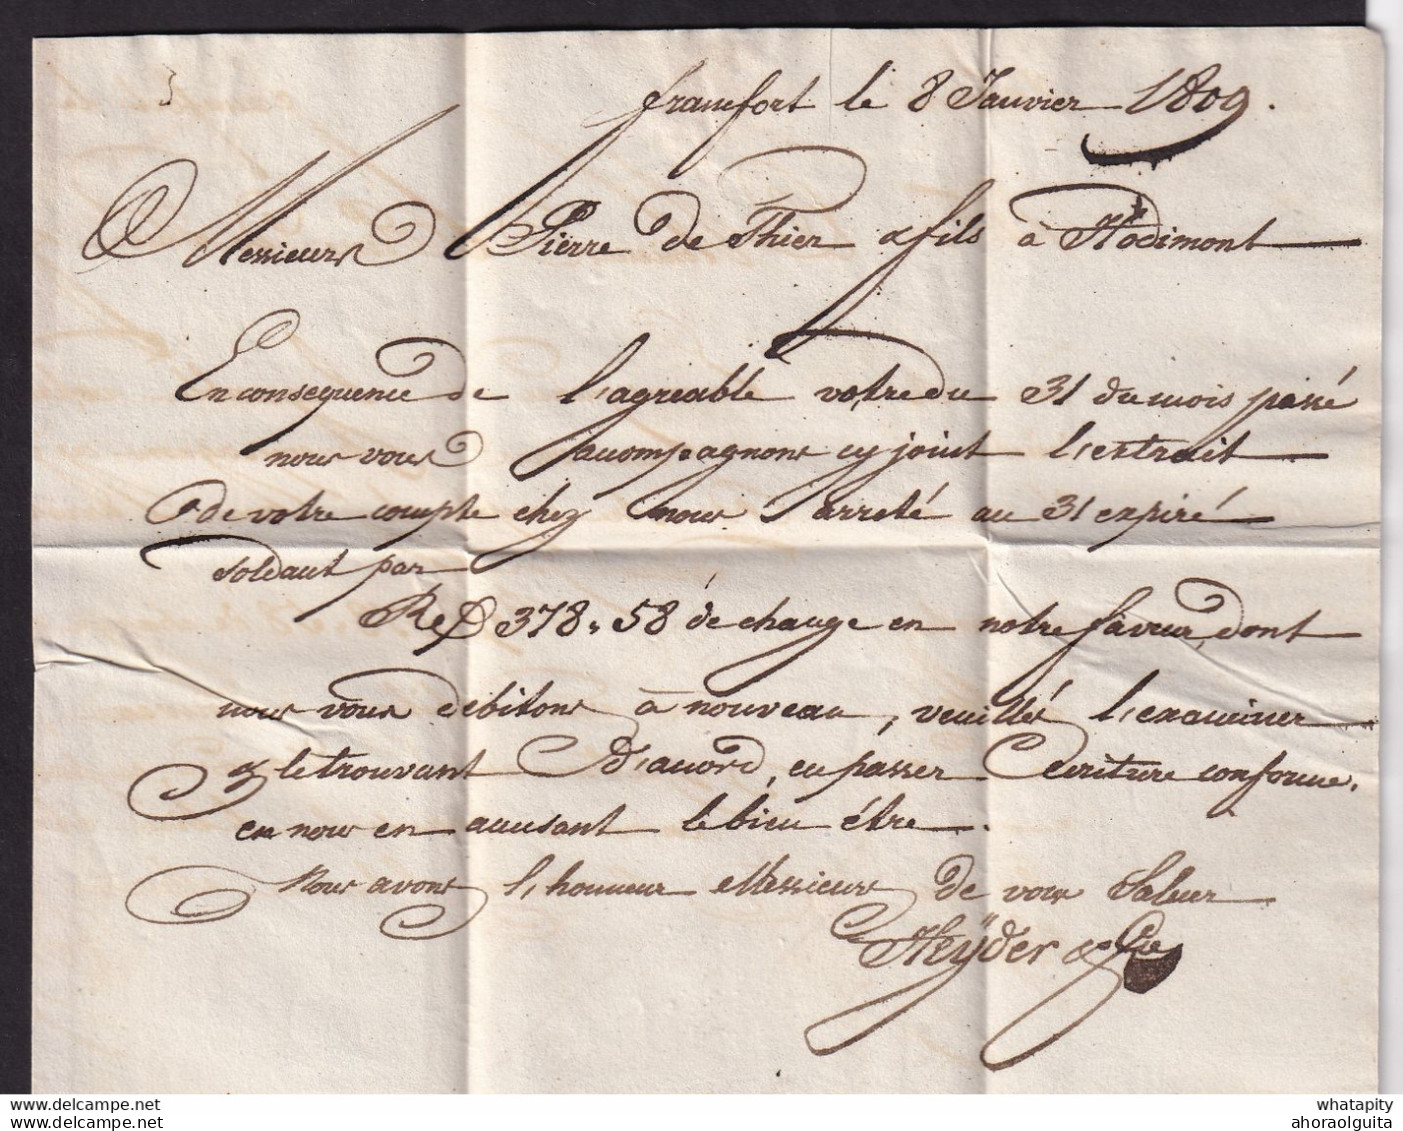 francfort le 8 Janvier 1809.
Messieurs Piërre de Thier & fils à Hodimont
En consequence de l'agreable votre du 31 du mois passé
nous vous acompagnons cy joint l'extrait
de votre compte chez nous arreté au 31 expiré
soldant par
378 " 58 de change en notre faveur, dont
nous vous debitons à nouveau, veuillés l'examiner
& le trouvant d'acord, en passer Ecriture conforme,
en nous en acusant le bien être.
Nous avons l'honneur Messieurs de vous Saluer
Heÿder & Cie
whatapity
ahoraolguita